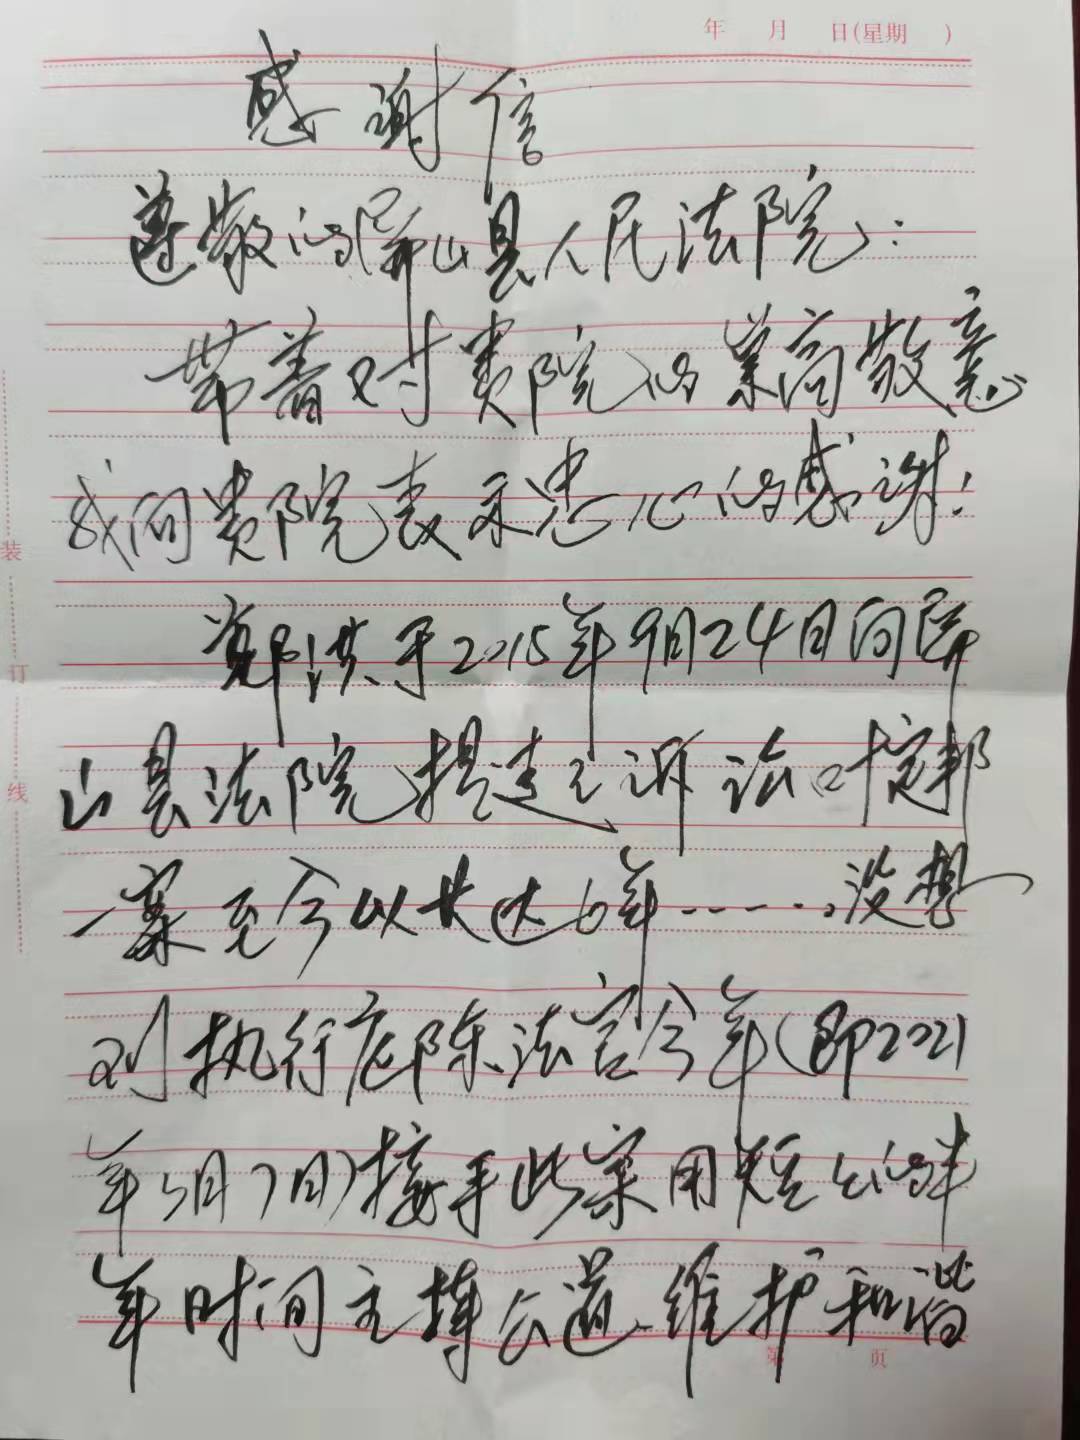 年 月 日(星期 )
感谢信
尊敬的屏山县人民法院:
带着对贵院的崇高敬意
我向贵院表示忠心的感谢!
郑洪于2015年9月24日向屏
山县法院提起诉讼叶定邦
一案至今以长达6年……没想
到执行庭陈法官今年(即2021
年5月7日)接手此案用短短的半
年时间主持公道、维护和谐
装
订
线
第 页